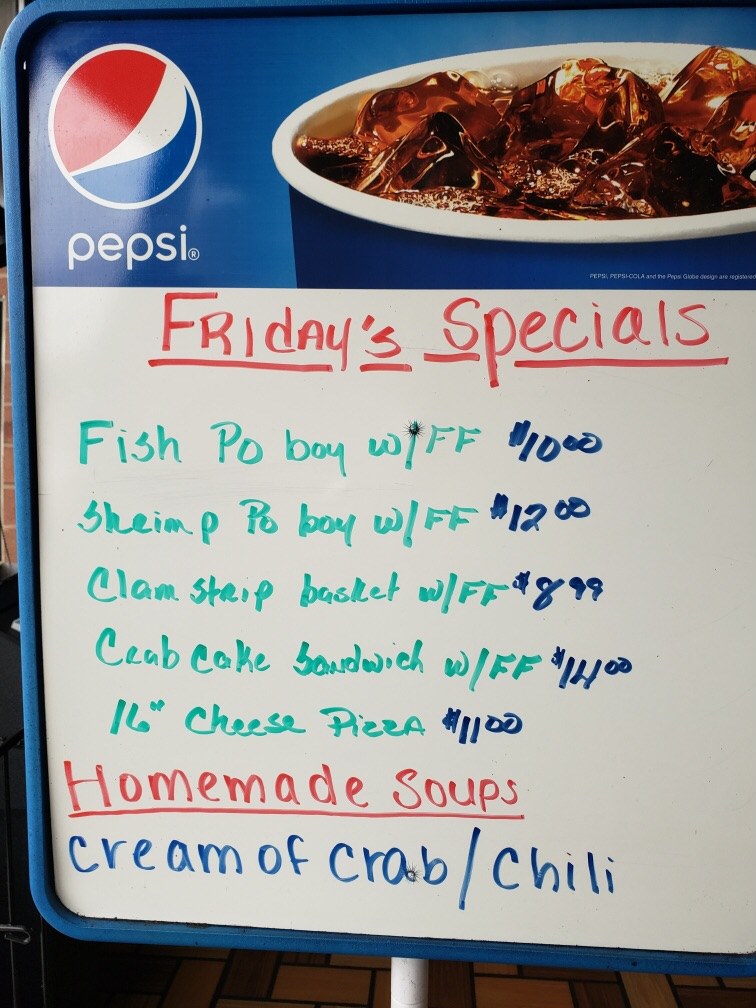 pepsi®
PEPSI, PEPSI-COLA and the Pepsi Globe design are registered
FRIdAY's Specials
Fish Po boy w/FF $10⁰⁰
Shrimp Po boy w/FF $12⁰⁰
Clam strip basket w/FF $8⁹⁹
Crab cake Sandwich w/FF $14⁰⁰
16" Cheese Pizza $11⁰⁰
Homemade Soups
cream of crab/Chili